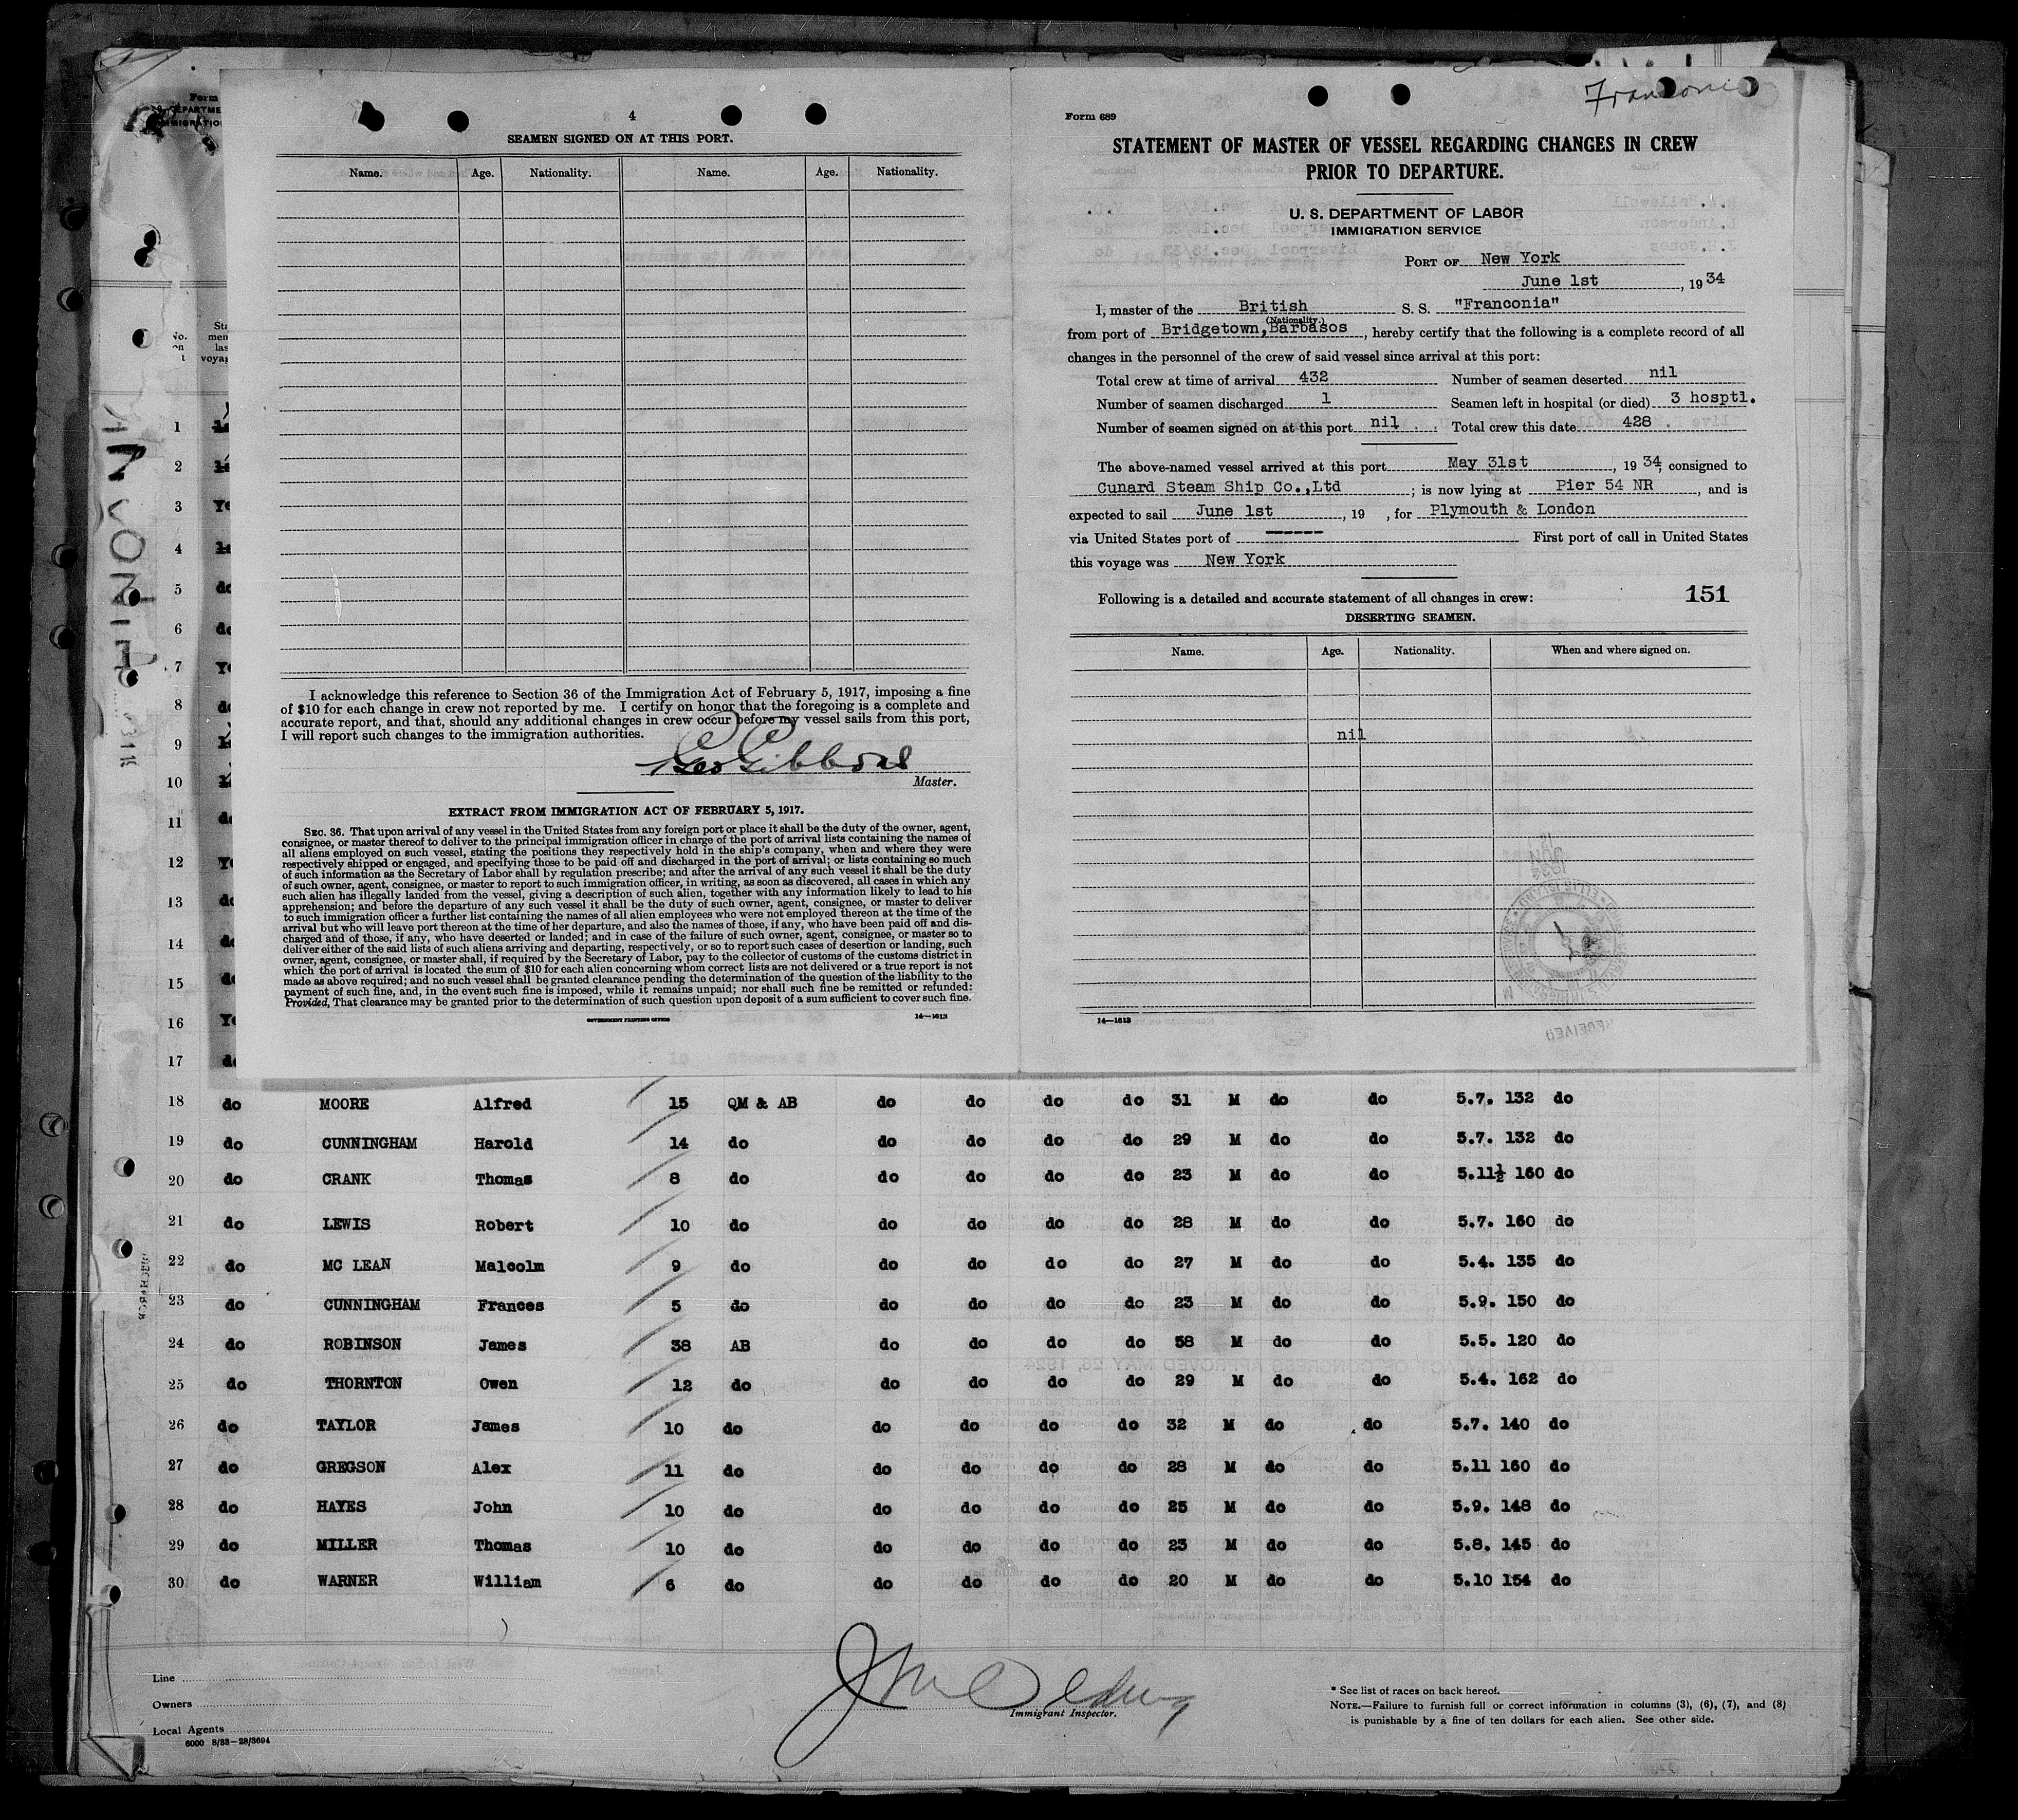 4
SEAMEN SIGNED ON AT THIS PORT.
Name. Age. Nationality. Name. Age. Nationality.
I acknowledge this reference to Section 36 of the Immigration Act of February 5, 1917, imposing a fine
of $10 for each change in crew not reported by me. I certify on honor that the foregoing is a complete and
accurate report, and that, should any additional changes in crew occur before my vessel sails from this port,
I will report such changes to the immigration authorities.
Geo Gibbons
Master.
EXTRACT FROM IMMIGRATION ACT OF FEBRUARY 5, 1917.
SEC. 36. That upon arrival of any vessel in the United States from any foreign port or place it shall be the duty of the owner, agent,
consignee, or master thereof to deliver to the principal immigration officer in charge of the port of arrival lists containing the names of
all aliens employed on such vessel, stating the positions they respectively hold in the ship's company, when and where they were
respectively shipped or engaged, and specifying those to be paid off and discharged in the port of arrival; or lists containing so much
of such information as the Secretary of Labor shall by regulation prescribe; and after the arrival of any such vessel it shall be the duty
of such owner, agent, consignee, or master to report to such immigration officer, in writing, as soon as discovered, all cases in which any
such alien has illegally landed from the vessel, giving a description of such alien, together with any information likely to lead to his
apprehension; and before the departure of any such vessel it shall be the duty of such owner, agent, consignee, or master to deliver
to such immigration officer a further list containing the names of all alien employees who were not employed thereon at the time of the
arrival but who will leave port thereon at the time of her departure, and also the names of those, if any, who have been paid off and dis-
charged and of those, if any, who have deserted or landed; and in case of the failure of such owner, agent, consignee, or master so to
deliver either of the said lists of such aliens arriving and departing, respectively, or so to report such cases of desertion or landing, such
owner, agent, consignee, or master shall, if required by the Secretary of Labor, pay to the collector of customs of the customs district in
which the port of arrival is located the sum of $10 for each alien concerning whom correct lists are not delivered or a true report is not
made as above required; and no such vessel shall be granted clearance pending the determination of the question of the liability to the
payment of such fine, and, in the event such fine is imposed, while it remains unpaid; nor shall such fine be remitted or refunded:
Provided, That clearance may be granted prior to the determination of such question upon deposit of a sum sufficient to cover such fine.
GOVERNMENT PRINTING OFFICE 14—1613
Franconia
Form 689
STATEMENT OF MASTER OF VESSEL REGARDING CHANGES IN CREW
PRIOR TO DEPARTURE.
U. S. DEPARTMENT OF LABOR
IMMIGRATION SERVICE
PORT OF New York
June 1st, 1934
I, master of the British S. S. "Franconia"
(Nationality.)
from port of Bridgetown, Barbasos, hereby certify that the following is a complete record of all
changes in the personnel of the crew of said vessel since arrival at this port:
Total crew at time of arrival 432 Number of seamen deserted nil
Number of seamen discharged 1 Seamen left in hospital (or died) 3 hosptl.
Number of seamen signed on at this port nil Total crew this date 428
The above-named vessel arrived at this port May 31st, 1934, consigned to
Cunard Steam Ship Co.,Ltd; is now lying at Pier 54 NR, and is
expected to sail June 1st, 19 , for Plymouth & London
via United States port of ------ First port of call in United States
this voyage was New York
Following is a detailed and accurate statement of all changes in crew: 151
DESERTING SEAMEN.
Name. Age. Nationality. When and where signed on.
nil
14—1613
RECEIVED
Form
FRANCONIA
1
2
3 Ye
4
5 do
6 do
7 Ye
8 do
9
10
11 do
12 Ye
13 do
14 do
15 do
16 Ye
17 do
18 do MOORE Alfred 15 QM & AB do do do do 31 M do do 5.7. 132 do
19 do CUNNINGHAM Harold 14 do do do do do 29 M do do 5.7. 132 do
20 do CRANK Thomas 8 do do do do do 23 M do do 5.11½ 160 do
21 do LEWIS Robert 10 do do do do do 28 M do do 5.7. 160 do
22 do MC LEAN Malcolm 9 do do do do do 27 M do do 5.4. 135 do
23 do CUNNINGHAM Frances 5 do do do do do 23 M do do 5.9. 150 do
24 do ROBINSON James 38 AB do do do do 58 M do do 5.5. 120 do
25 do THORNTON Owen 12 do do do do do 29 M do do 5.4. 162 do
26 do TAYLOR James 10 do do do do do 32 M do do 5.7. 140 do
27 do GREGSON Alex 11 do do do do do 28 M do do 5.11 160 do
28 do HAYES John 10 do do do do do 25 M do do 5.9. 148 do
29 do MILLER Thomas 10 do do do do do 23 M do do 5.8. 145 do
30 do WARNER William 6 do do do do do 20 M do do 5.10 154 do
Line
Owners
Local Agents
6000 8/33—28/3694
Immigrant Inspector.
* See list of races on back hereof.
NOTE.—Failure to furnish full or correct information in columns (3), (6), (7), and (8)
is punishable by a fine of ten dollars for each alien. See other side.